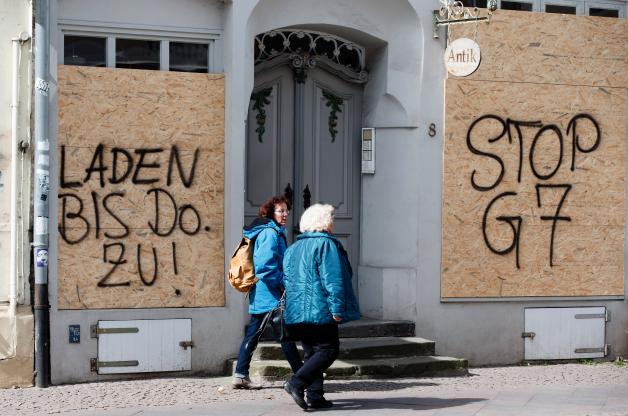 LADEN
BIS Do.
ZU!
Antik
8
STOP
G7